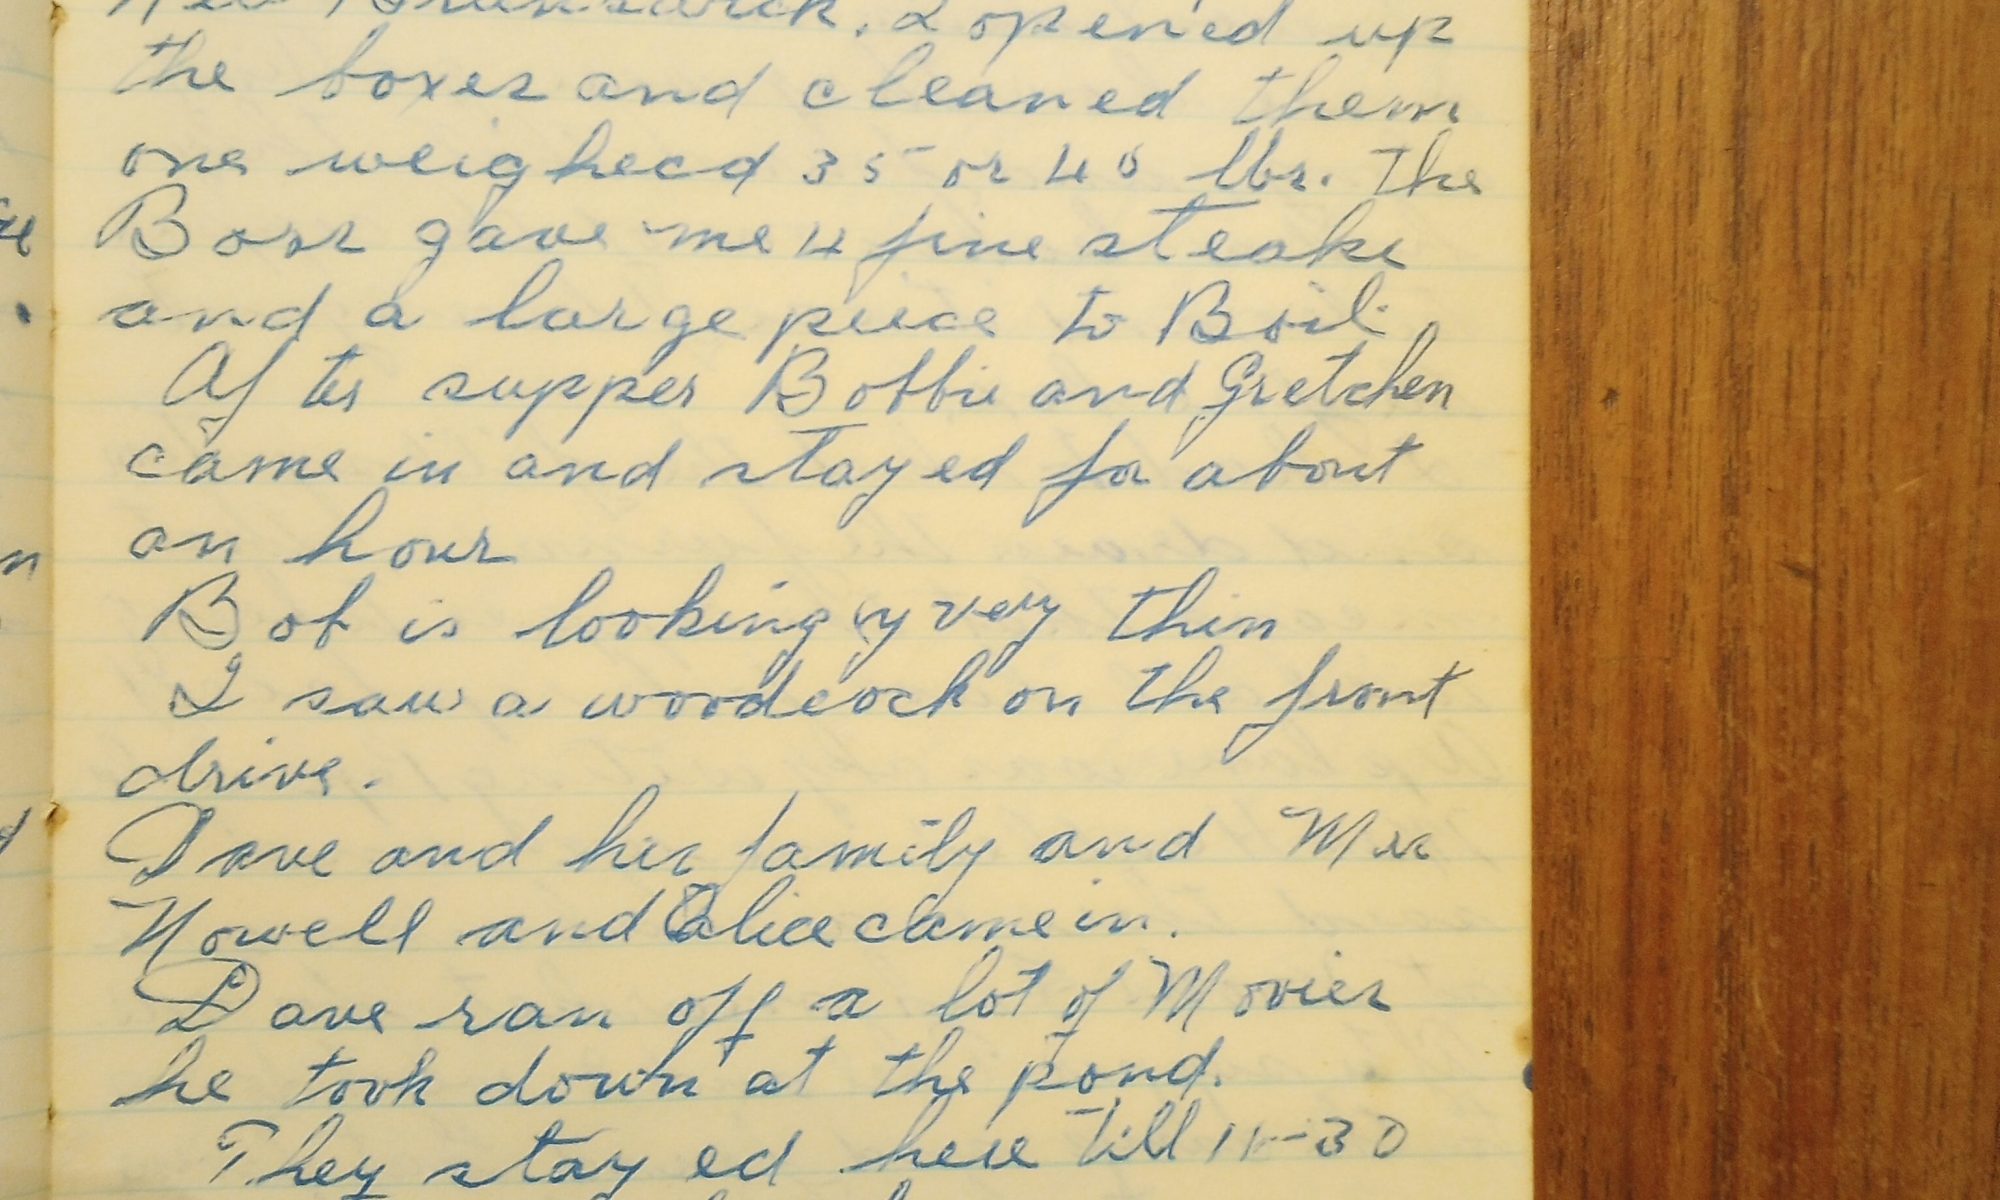 New Brunswick. I opened up
the boxes and cleaned them
one weighed 35 or 40 lbs. The
Boss gave me 4 fine steaks
and a large piece to Boil
After supper Bobbie and Gretchen
came in and stayed for about
an hour
Bob is looking very thin
I saw a woodcock on the front
drive.
Dave and his family and Mrs
Nowell and Alice came in.
Dave ran off a lot of Movies
he took down at the pond.
They stayed here till 11-30